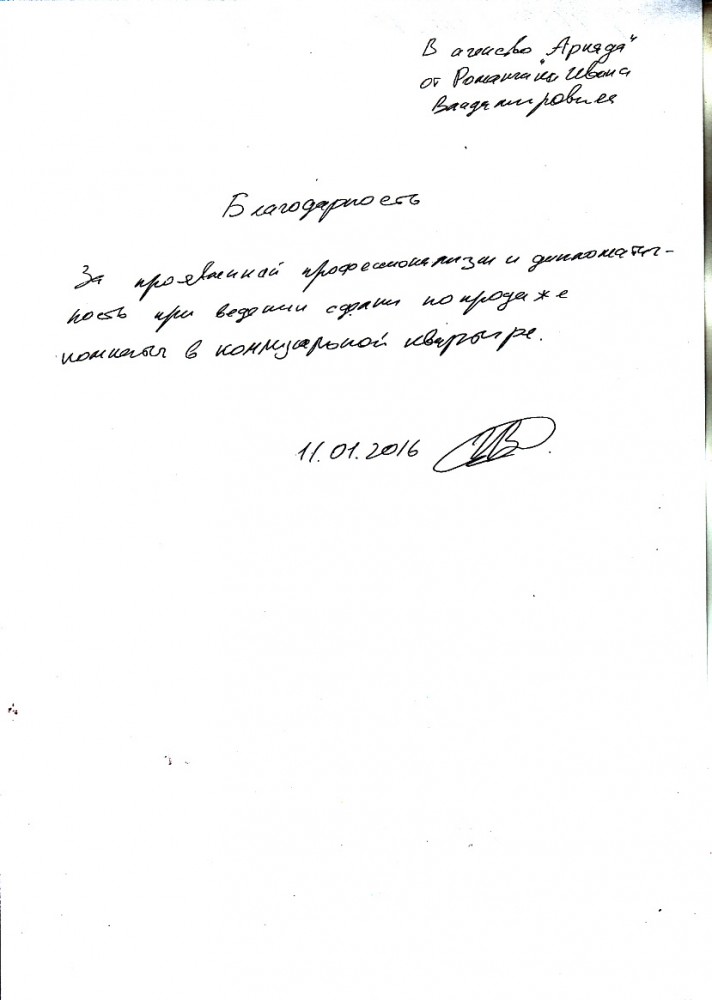 В агенство "Аркада"
от Ивана
Владимировича
Благодарность
За проявленный профессионализм и дипломатич-
ность при ведении сделки по продаже
комнаты в коммунальной квартире.
11.01.2016